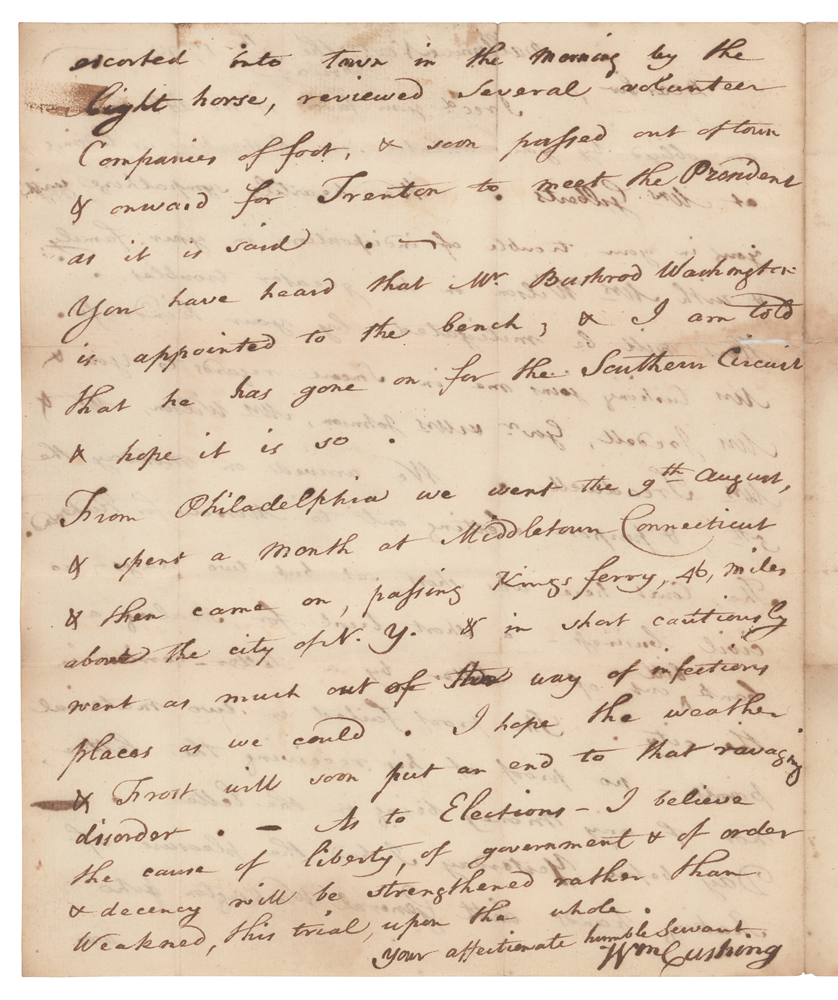 escorted into town in the morning by the
light horse, reviewed several volunteer
Companies of foot, & soon passed out of town
& onward for Trenton to meet the President
as it is said . —
You have heard that Mr. Bushrod Washington
is appointed to the bench; & I am told
that he has gone on for the Southern Circuit
& hope it is so .
From Philadelphia we went the 9th August,
& spent a month at Middletown Connecticut
& then came on, passing Kings ferry, 46, miles
above the city of N. Y. & in short cautiously
went as much out of the way of infections
places as we could . I hope the weather
& Frost will soon put an end to that ravaging
disorder . — As to Elections – I believe
the cause of liberty, of government & of order
& decency will be strengthened rather than
Weakned, this trial, upon the whole .
your affectionate humble Servant
Wm Cushing